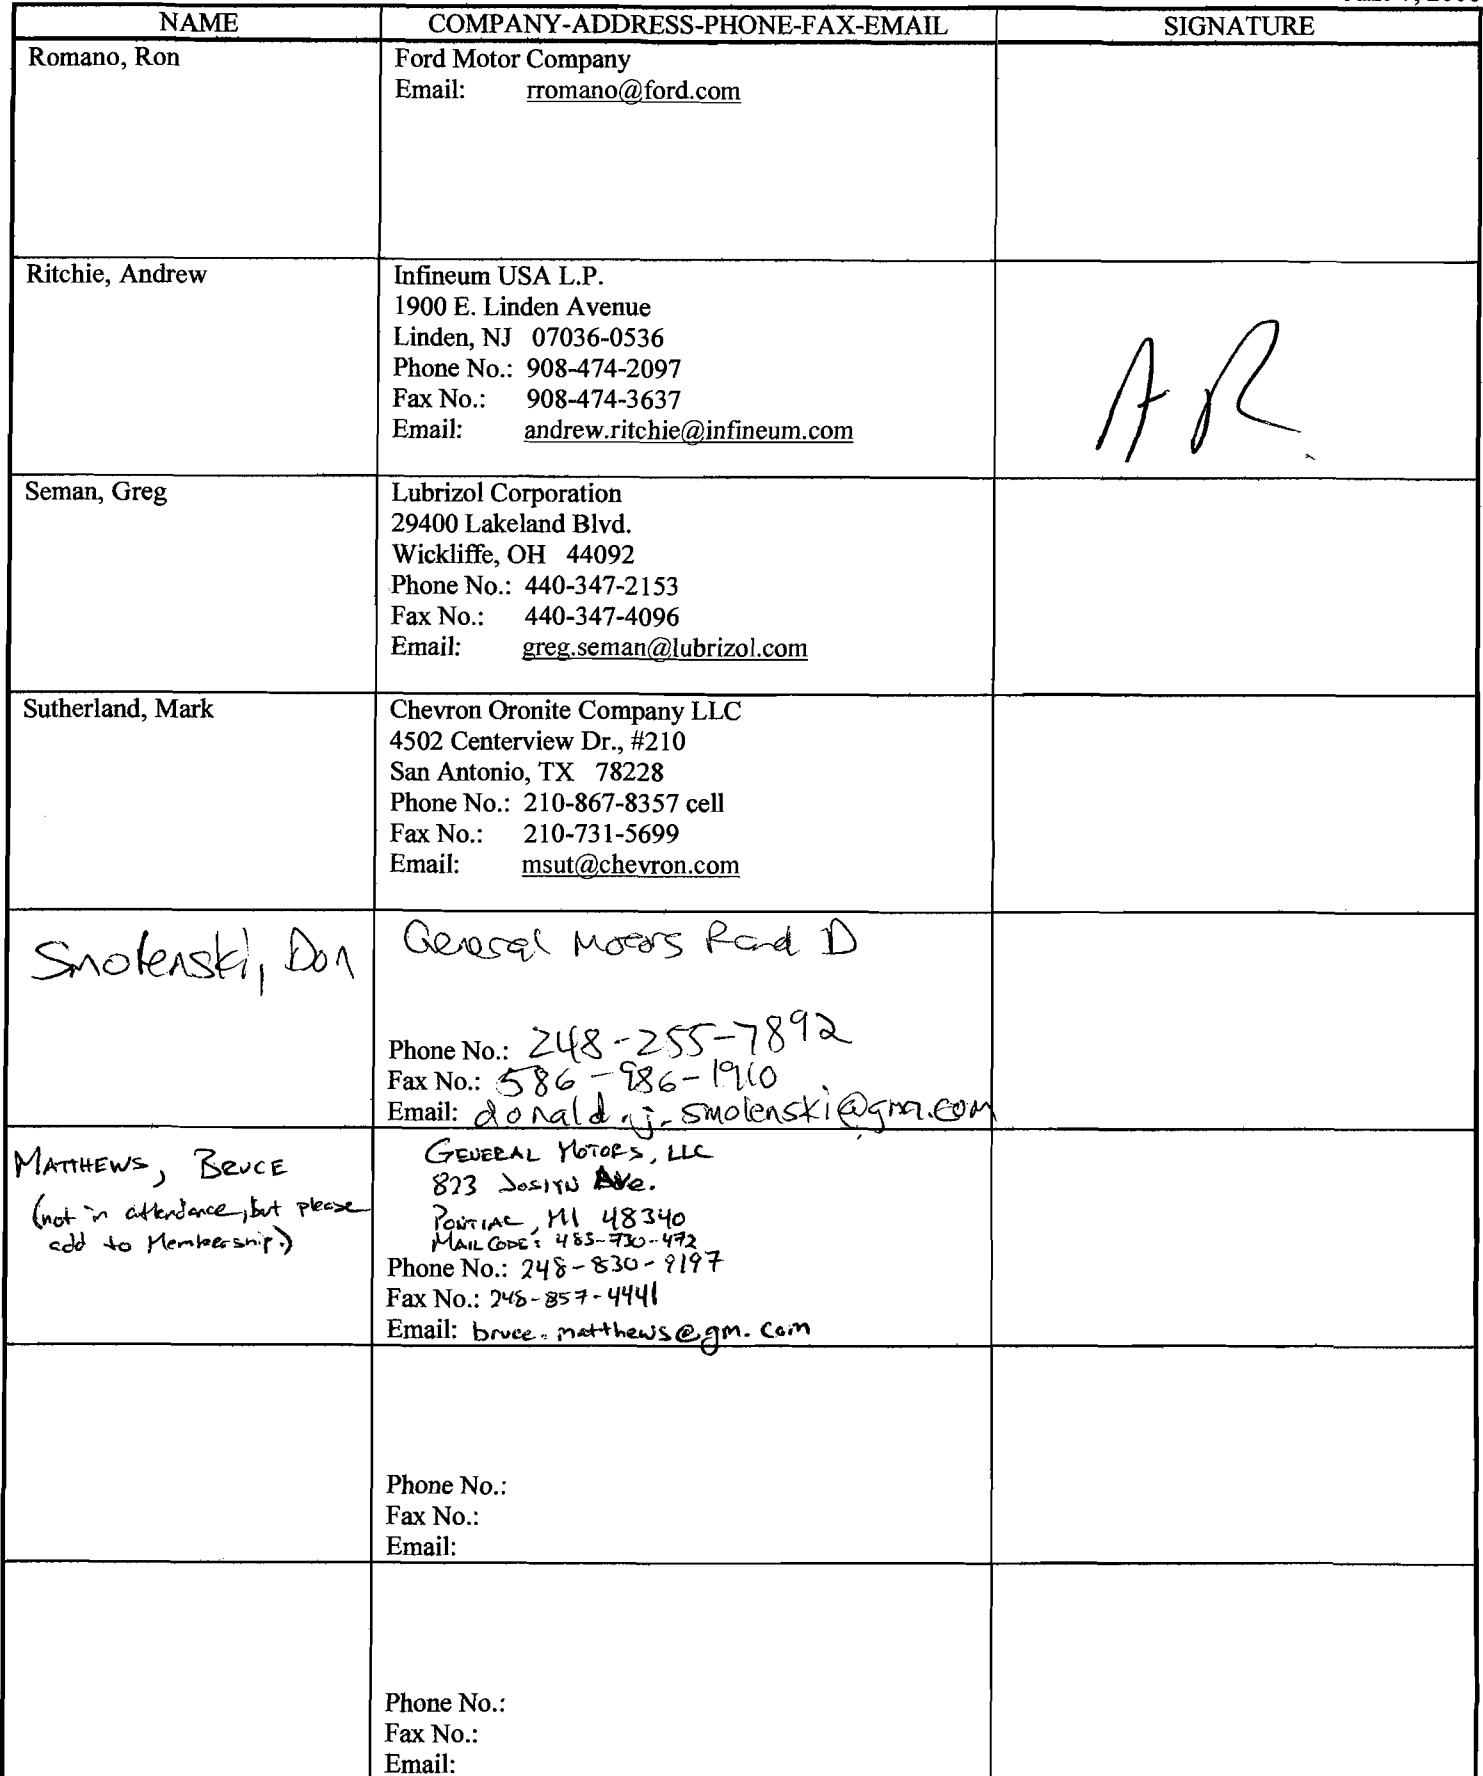 NAME COMPANY-ADDRESS-PHONE-FAX-EMAIL SIGNATURE
Romano, Ron
Ford Motor Company
Email: rromano@ford.com
Ritchie, Andrew
Infineum USA L.P.
1900 E. Linden Avenue
Linden, NJ 07036-0536
Phone No.: 908-474-2097
Fax No.: 908-474-3637
Email: andrew.ritchie@infineum.com
A R
Seman, Greg
Lubrizol Corporation
29400 Lakeland Blvd.
Wickliffe, OH 44092
Phone No.: 440-347-2153
Fax No.: 440-347-4096
Email: greg.seman@lubrizol.com
Sutherland, Mark
Chevron Oronite Company LLC
4502 Centerview Dr., #210
San Antonio, TX 78228
Phone No.: 210-867-8357 cell
Fax No.: 210-731-5699
Email: msut@chevron.com
Smolenski, Don
General Motors R and D
Phone No.: 248-255-7892
Fax No.: 586-986-1910
Email: donald.j.smolenski@gm.com
MATTHEWS, BRUCE
(not in attendance, but please
add to Membership.)
GENERAL MOTORS, LLC
823 Joslyn Ave.
PONTIAC, MI 48340
MAIL CODE: 483-730-472
Phone No.: 248-830-9197
Fax No.: 248-857-4441
Email: bruce.matthews@gm.com
Phone No.:
Fax No.:
Email:
Phone No.:
Fax No.:
Email: